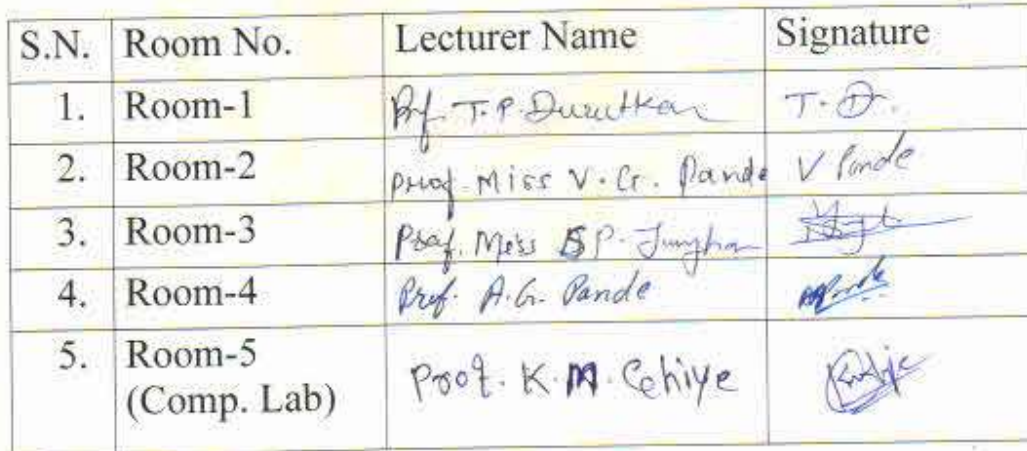 S.N. Room No. Lecturer Name Signature
1. Room-1 Prof. T.P. Durutkar T.D.
2. Room-2 Prof. Miss V.G. Pande V Pande
3. Room-3 Prof. Miss S P.
4. Room-4 Prof. A.G. Pande
5. Room-5 Prof. K.M.
(Comp. Lab)